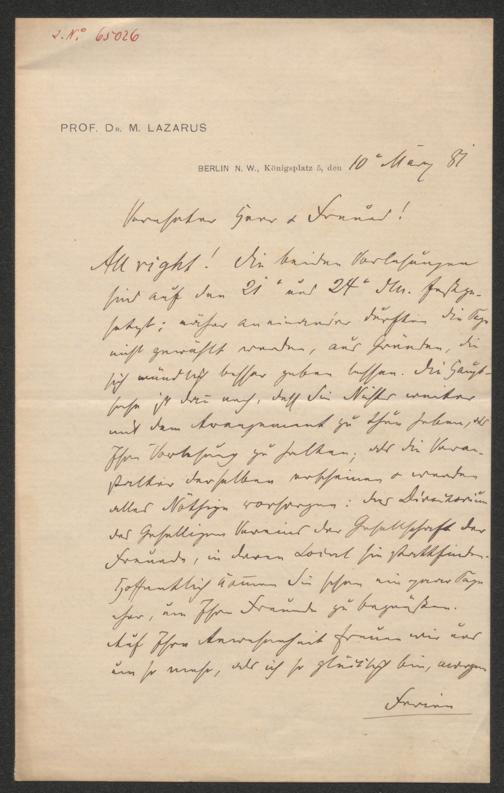 J. No 65026
PROF. DR. M. LAZARUS
BERLIN N. W., Königsplatz 5, den 10t März 81
Verehrter Herr & Freund!
All right! Die beiden Vorlesungen
sind auf den 21t und 24t dss. festge-
setzt; näher aneinander durften die Tage
nicht gewählt werden, aus Gründen, die
sich mündlich besser geben lassen. Die Haupt-
sache ist daß Sie Nichts weiter
mit dem Arrangement zu thun haben, als
Ihre Vorlesung zu halten; als die Veran-
stalter derselben erscheinen & werden
alles Nöthige vorsorgen: das Directorium
des Geselligen Vereins der Gesellschaft der
Freunde, in deren Local sie stattfinden.
Hoffentlich kommen Sie schon ein paar Tage
eher, um Ihre Freunde zu begrüßen.
Auf Ihre Anwesenheit freuen wir uns
um so mehr, als ich so glücklich bin, morgen
Ferien